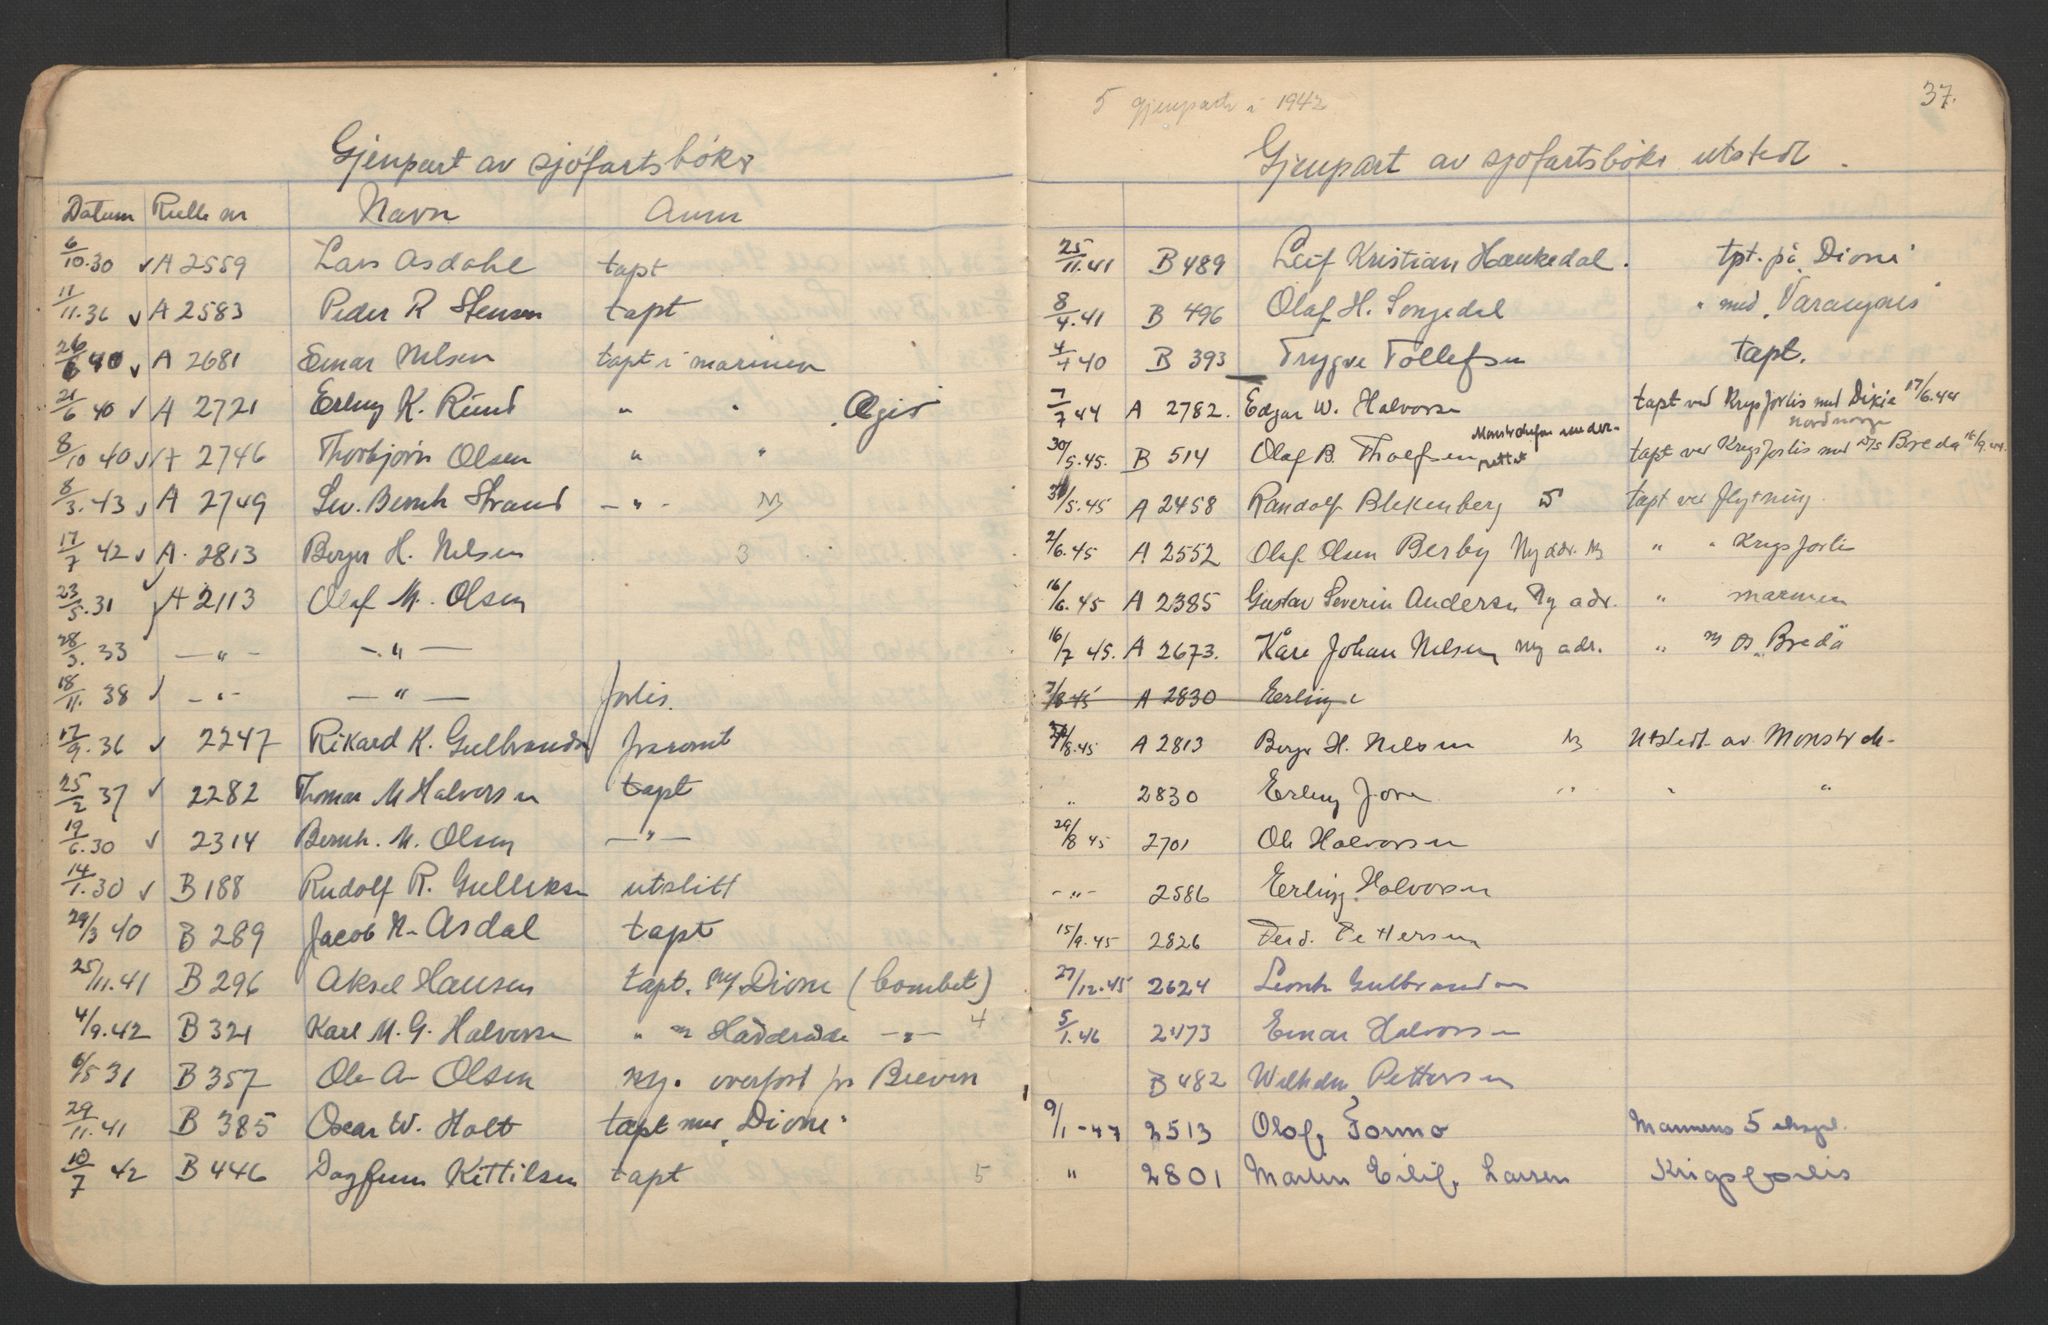 Gjenpart av sjöfartsbökr
Datum Rulle nr Navn Anm
6/10.30 ✓ A 2559 Lars Asdahl tapt
11/11.36 ✓ A 2583 Peder R Stensen tapt
26/6 40 ✓ A 2681 Einar Nilsen tapt i marinen
21/6 40 ✓ A 2721 Erling K. Rund " " Ægir
8/10 40 ✓ A 2746 Thorbjörn Olsen " "
8/3.43 ✓ A 2749 Sev. Bernh Strand — " - Ny
17/7 42 ✓ A. 2813 Berger H. Nilsen 3
23/5.31 A 2113 Olaf M. Olsen
28/3.33 — " - — " —
18/11.38 ✓ - " - — " — forlis.
17/9.36 ✓ 2247 Rikard K. Gulbrands
25/2 37 ✓ 2282 Thomas M Halvorsen tapt
19/6.30 ✓ 2314 Bernh. M. Olsen — " —
14/1.30 ✓ B 188 Rudolf R. Gulleksen utslitt
29/3 40 B 289 Jacob N. Asdal tapt
25/11.41 B 296 Aksel Hansen tapt. m/ Dione (bombet)
4/9.42 B 321 Karl M. G. Halvorsen " " Hardråde — " — 4
6/5 31 B 357 Ole A Olsen ny. overfört fr Brevik
29/11.41 B 385 Oscar W. Holt tapt med "Dione"
10/7 42 B 446 Dagfinn Kittilsen tapt 5
5 gjenparter i 1942
37.
Gjenpart av sjöfartsbökr utstedt.
25/11.41 B 489 Leif Kristian Haukedal. tpt. på "Dione"
8/4.41 B 496 Olaf H. Songedal " med "Varangnes"
4/4 40 B 393 Trygve Tollefsen tapt.
7/7 44 A 2782. Edgar W. Halvorsen tapt ved Krigsforlis med Dixie 17/6.44
Nordnorge
30/5.45. B 514 Olaf B. Tholfsen tapt ved Krigsforlis med D/S Breda
31/5.45 A 2458 Randolf Blekenberg tapt ved flytning.
2/6.45 A 2552 Olaf Olsen Berby Ny adr. Ny " " Krigsforlis
16/6.45 A 2385 Gustav Severin Andersen Ny adr. " marinen
16/7 45. A 2673. Kåre Johan Nilsen Ny adr. " m DS "Breda"
7/8 45 A 2830 Erling
8.45 A 2813 Berger H. Nilsen Ny Utstedt av Mönstr ch-
" 2830 Erling " " "
29/8 45 2701 Ole Halvorsen
- " - 2586 Erling Halvorsen
15/9.45 2826 Ferd. Pettersen
27/12.45 2624 Leonh Gulbrandsen
5/1.46 2473 Einar Halvorsen
B 482 Wilhelm Pettersen
9/1-47 2513 Olof, Tormo Mannens 5 ekspl.
" 2801 Martin Eilif, Larsen Krigsforlis